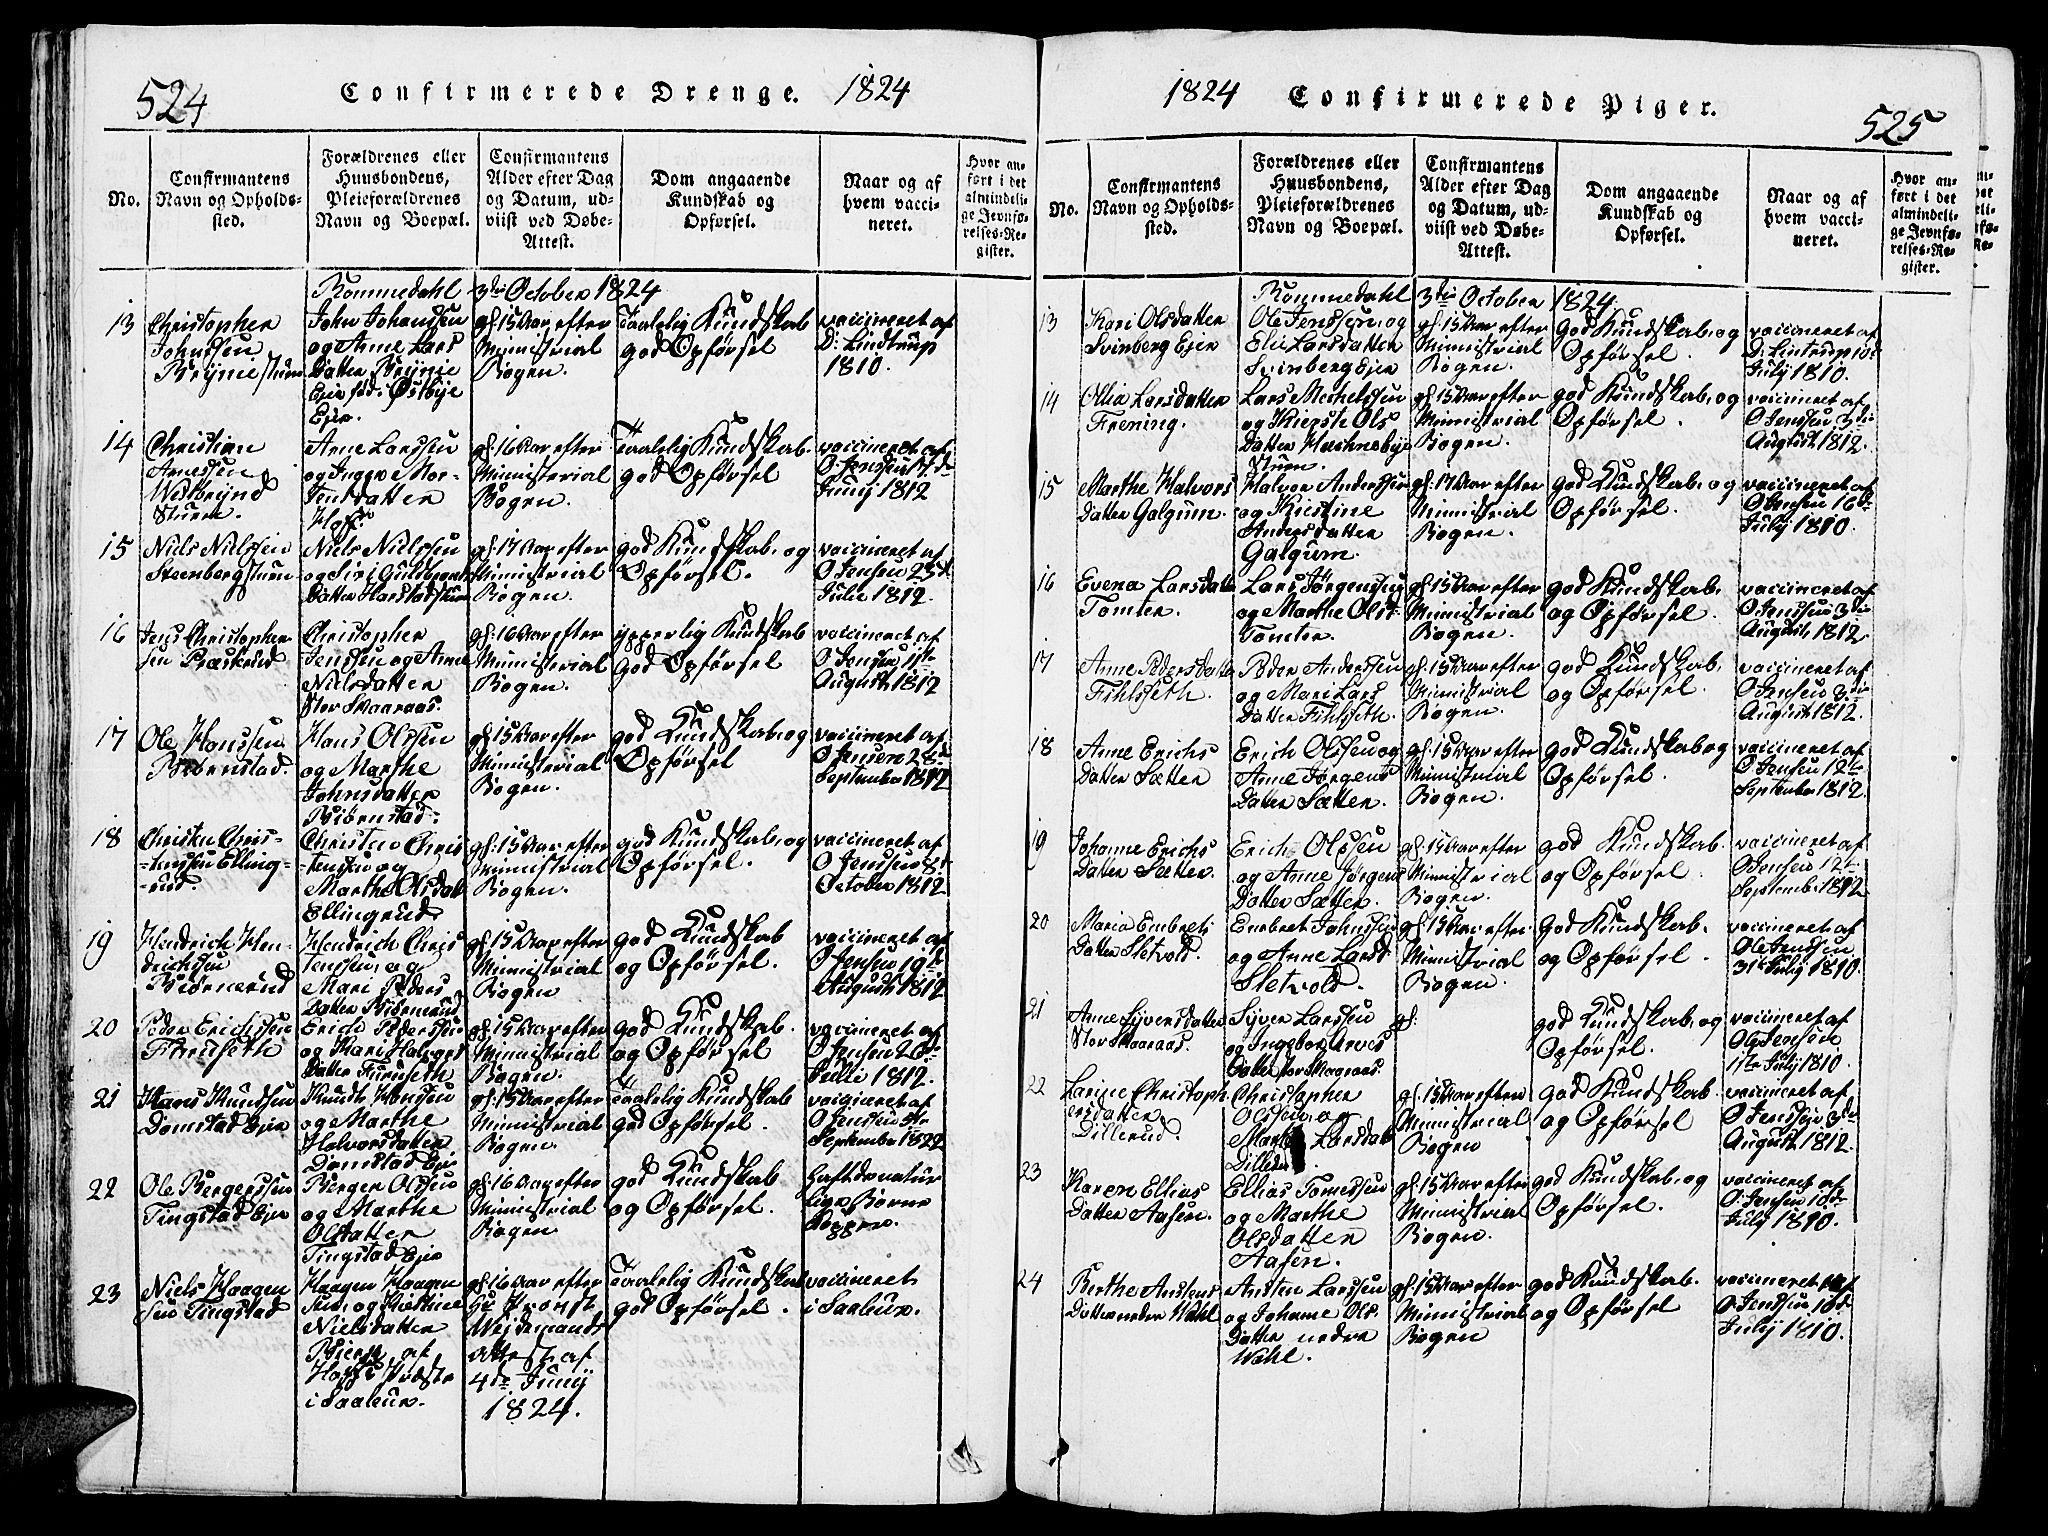 524
Confirmerede Drenge. 1824
No.
Confirmantens
Navn og Opholds-
sted.
Forældrenes eller
Huusbondens,
Pleieforældrenes
Navn og Boepæl.
Confirmantens
Alder efter Dag
og Datum, ud-
viist ved Døbe-
Attest.
Dom angaaende
Kundskab og
Opførsel.
Naar og af
hvem vacci-
neret.
Hvor an-
ført i det
almindeli-
ge Jevnfø-
relses-Re-
gister.
Rommedahl 3die October 1824
13
Christopher
Johnssen
Brynie stuen
John Johanssen
og Anne Lars
Datter Brynie
Eier fød: Østbye
Eier.
gl: 15 Aar efter
Ministrial
Bogen.
Taalelig Kundskab
god Opførsel
vaccineret af
D: Lindtrup
1810.
14
Christian
Arnessen
Westbrynd
Stuen.
Arne Larssen
og Inger Mor-
tensdatter
gl: 16 Aar efter
Ministrial
Bogen.
Taalelig Kundskab.
god Opførsel
vaccineret af
O: Jenssen
Junij 1812
15
Niels Nielssen
Steenberg stuen
Niels Nielssen
og Siri Guldbrands
Datter Harstadstuen
gl: 17 Aar efter
Ministrial
Bogen.
god Kundskab, og
Opførsel.
vaccineret af
O Jensen 23d
Julii 1812.
16
Jens Christopher
sen Præskerud
Christopher
Jenssen og Anne
Nielsdatter
Stor Skaaraas.
gl: 16 Aar efter
Ministrial
Bogen.
ypperlig Kundskab
God Opførsel
vaccineret af
O Jenssen 1ste
August 1812
17
Ole Hanssen
Biørnstad.
Hans Olssen
og Marthe
Johnsdatter
Biørnstad.
gl: 15 Aar efter
Ministrial
Bogen.
god Kundskab, og
Opførsel
vaccineret af
O Jensen 28d
September 1812
18
Christen Chris-
tenssen Elling-
rud.
Christen Chris
tenssen og
Marthe Olsdatt
Ellingrud
gl: 15 Aar efter
Ministrial
Bogen.
god Kundskab, og
Opførsel.
vaccineret af
O Jenssen 8d
October 1812
19
Hendrich Hen-
drichssen
Biørnerud
Hendrich Chris
tenssen, og
Mari Peders
Datter Biørnerud
gl: 15 Aar efter
Ministrial
Bogen
god Kundskab
og Opførsel.
vaccineret af
O Jensen 19d
August 1812
20
Peder Erichssen
Furuseth
Erich Pederssen
og Kari Halvors
Datter Furuseth
gl: 15 Aar efter
Ministrial
Bogen.
god Kundskab.
og Opførsel
vaccineret af
O Jensen 26de
Julii 1812.
21
Hans Knudssen
Domstad Eier
Knudt Hanssen
og Marthe
Halvorsdatter
Domstad Eier
gl: 15 Aar efter
Ministrial
Bogen.
Taalelig Kundskab
god Opførsel.
vaccineret af
O Jenssen
September 1822
22
Ole Bergerssen
Tingstad Eier
Berger Olssen
og Marthe
Olsdatter
Tingstad Eier
gl: 16 Aar efter
Ministrial
Bogen
god Kundskab
og Opførsel.
haft de natur
lige Børne
kopper.
23
Niels Haagen
sen Tingstad
Haagen Haagen
sen, og Kirstine
Nielsdatter
i Saaleur.
gl: 16 Aar efter
Hr Provst
Wejdemands
attest af
4de Junij
1824.
Taalelig Kundskab
god Opførsel.
vaccineret
i Saaleur.
1824 Confirmerede Piger.
525
No.
Confirmantens
Navn og Opholds-
sted.
Forældrenes eller
Huusbondens,
Pleieforældrenes
Navn og Boepæl.
Confirmantens
Alder efter Dag
og Datum, ud-
viist ved Døbe-
Attest.
Dom angaaende
Kundskab og
Opførsel.
Naar og af
hvem vacci-
neret.
Hvor an-
ført i det
almindeli-
ge Jevnfø-
relses-Re-
gister.
Rommedahl 3die October 1824.
13
Kari Olsdatter
Svinberg Eier
Ole Jenssen, og
Elie Larsdatter
Svinberg Eier
gl: 15 Aar efter
Ministrial
Bogen.
god Kundskab, og
Opførsel.
vaccineret af
Julij 1810.
14
Ollia Larsdatter
Frening.
Lars Michelssen
og Kiersti Ols
Datter
Stuen.
gl: 15 Aar efter
Ministrial
Bogen.
god Kundskab, og
Opførsel.
vaccineret af
O Jenssen 3die
August 1812.
15
Marthe Halvors
Datter Galgum.
Halvor Anderssen
og Kirstine
Andersdatter
Galgum.
gl: 17 Aar efter
Ministrial
Bogen.
god Kundskab, og
Opførsel.
vaccineret af
O Jensen 16de
Julij 1810.
16
Evena Larsdatter
Tomter.
Lars Jørgenssen
og Marthe Olsd
Tomter.
gl: 15 Aar efter
Ministrial
Bogen.
god Kundskab,
og Opførsel.
vaccineret af
O Jenssen 3die
August 1812.
17
Anne Pedersdatter
Fihlseth.
Peder Anderssen
og Mari Lars
Datter Fihlseth.
gl: 15 Aar efter
Ministrial
Bogen.
god Kundskab,
og Opførsel.
vaccineret af
O Jensen 3die
August 1812.
18
Anne Erichs
Datter Sætter
Erich Olssen og
Anne Jørgens
Datter Sætter.
gl: 15 Aar efter
Ministrial
Bogen.
god Kundskab og
Opførsel.
vaccineret af
O Jensen 12te
September 1812.
19
Johanne Erichs
Datter Sætter.
Erich Olssen
og Anne Jørgens
Datter Sætter.
gl: 15 Aar efter
Ministrial
Bogen.
god Kundskab.
og Opførsel.
vaccineret af
O Jensen 12te
September 1812
20
Maria Embrets
Datter Sletvold.
Embret Johnssen
og Anne Larsd
Sletvold.
gl: 15 Aar efter
Ministrial
Bogen.
God Kundskab.
og Opførsel.
vaccineret af
Ole Jenssen
31te Julij 1810.
21
Anne Syversdatter
Stor Skaaraas.
Syver Larssen
og Ingebor Arnes
Datter Stor Skaaraas.
gl:
god Kundskab, og
Opførsel.
vaccineret af
Ole Jensen
11te Julij 1810.
22
Larine Christoph
ersdatter
Dillerud.
Christopher
Olssen, og
Larsdatt
gl: 15 Aar efter
Ministrial
Bogen
god Kundskab
og Opførsel
vaccineret af
O Jenssen 3de
August 1812.
23
Karen Ellias
Datter Aasen.
Ellias Tomessen
og Marthe
Olsdatter
Aasen.
gl: 15 Aar efter
Ministrial
Bogen.
god Kundskab, og
Opførsel.
vaccineret af
O Jensen 10de
Julij 1810.
24
Berthe Anstens
Datter nedre Wahl
Ansten Larssen
og Johanne Ols
Datter nedre
Wahl.
gl: 15 Aar efter
Ministrial
Bogen
god Kundskab.
og Opførsel
vaccineret af
O Jenssen 10d
Julij 1810.